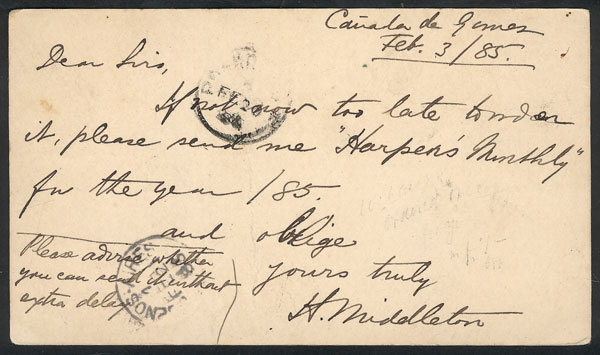 Cañada de Gomez
Feb. 3/85.
Dear Sirs,
If not now too late to order
it, please send me "Harper's Monthly"
for the year /85.
and oblige
Yours truly
H. Middleton
Please advise whether
you can send it without
extra delay